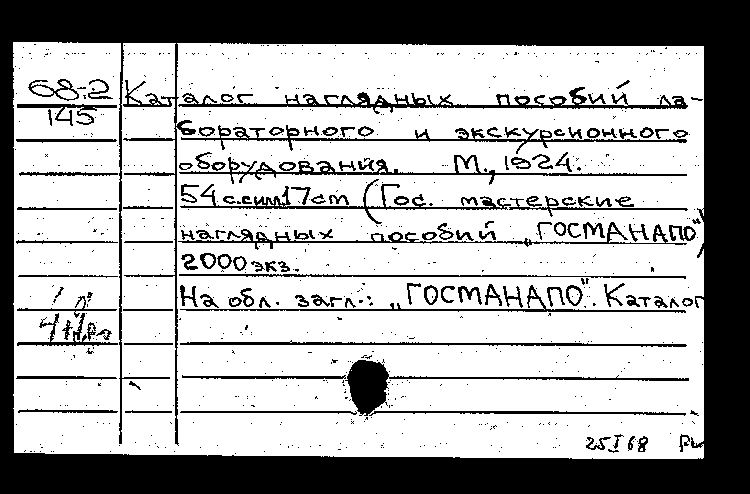 68-2 Каталог наглядных пособий ла-
145
бораторного и экскурсионного
оборудования. М., 1924.
54 с. с илл 17 cm (Гос. мастерские
наглядных пособий „ГОСМАНАПО")
2000 экз.
На обл. загл.: „ГОСМАНАПО". Каталог
25 I 68